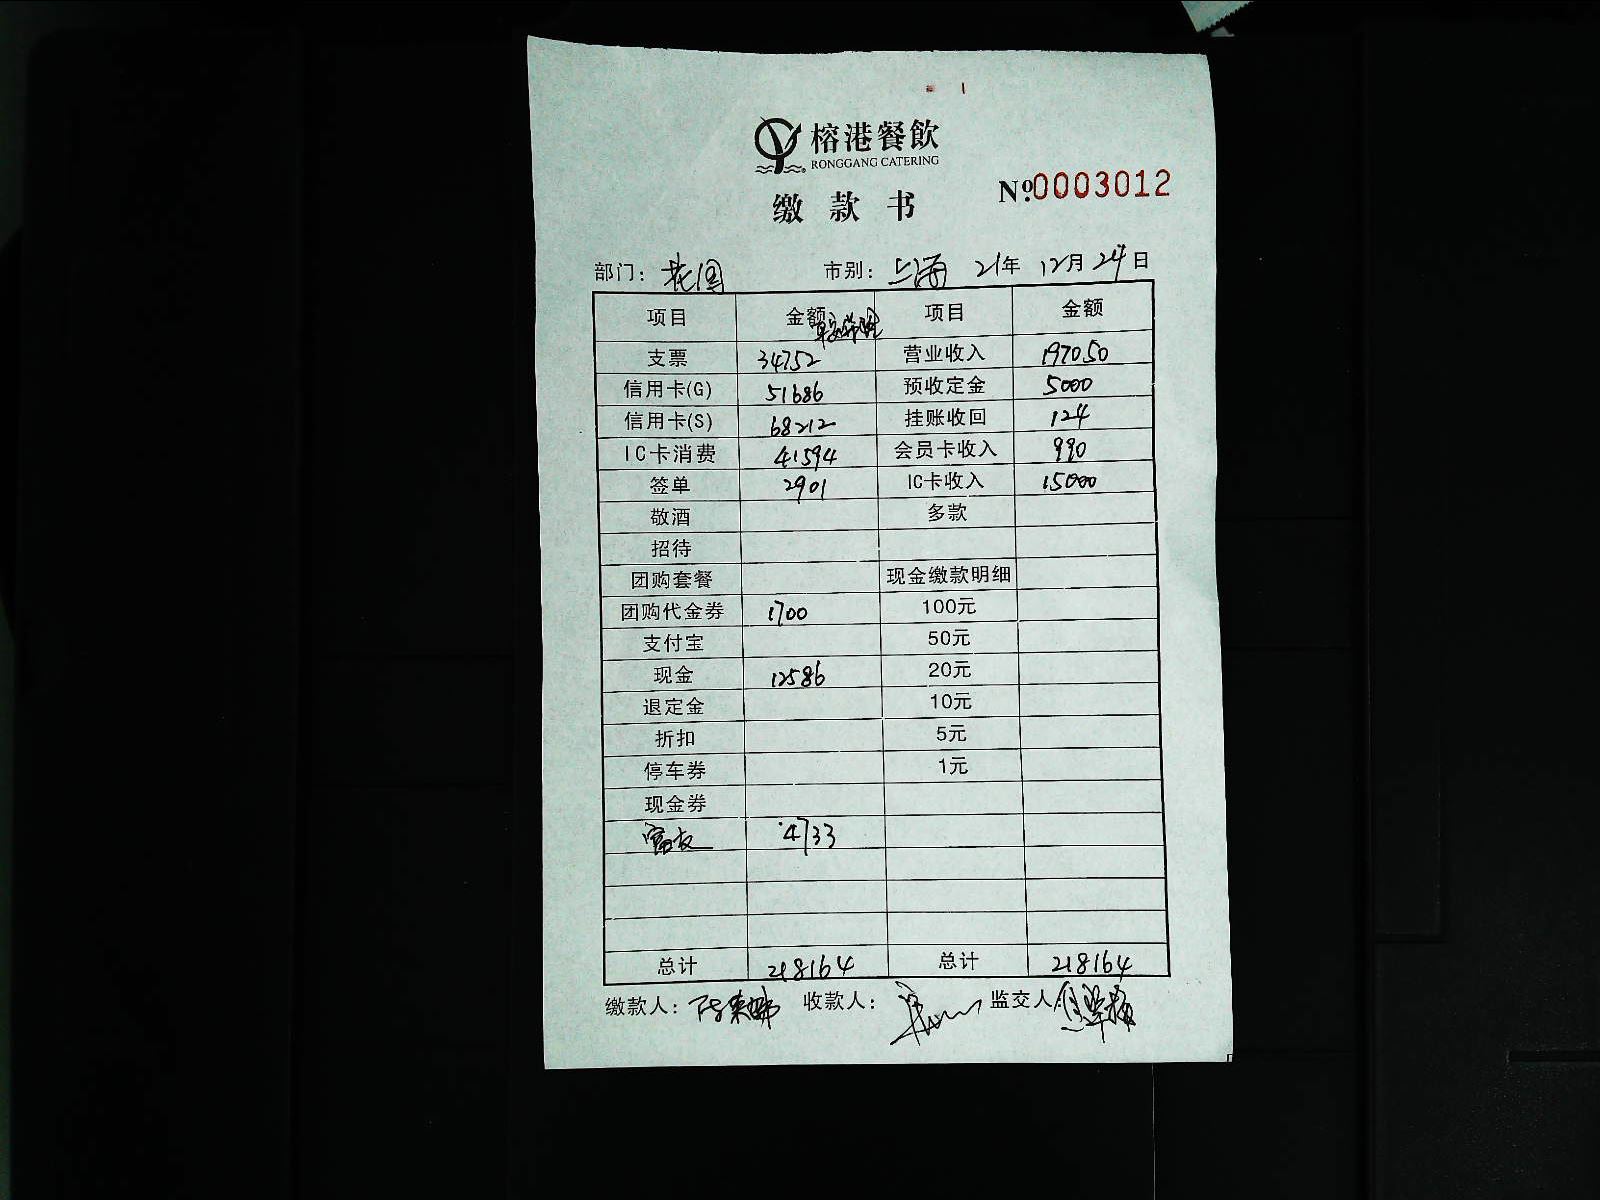 榕港餐飲
RONGGANG CATERING
缴款书
Nº.0003012
部门：花园 市别：上海 21年 12月 24日
项目 金额 项目 金额
支票 34752 营业收入 197050
信用卡(G) 51686 预收定金 5000
信用卡(S) 68212 挂账收回 124
IC卡消费 41594 会员卡收入 990
签单 2901 IC卡收入 15000
敬酒 多款
招待
团购套餐 现金缴款明细
团购代金券 1700 100元
支付宝 50元
现金 12586 20元
退定金 10元
折扣 5元
停车券 1元
现金券
富友 4733
总计 218164 总计 218164
缴款人： 收款人： 监交人